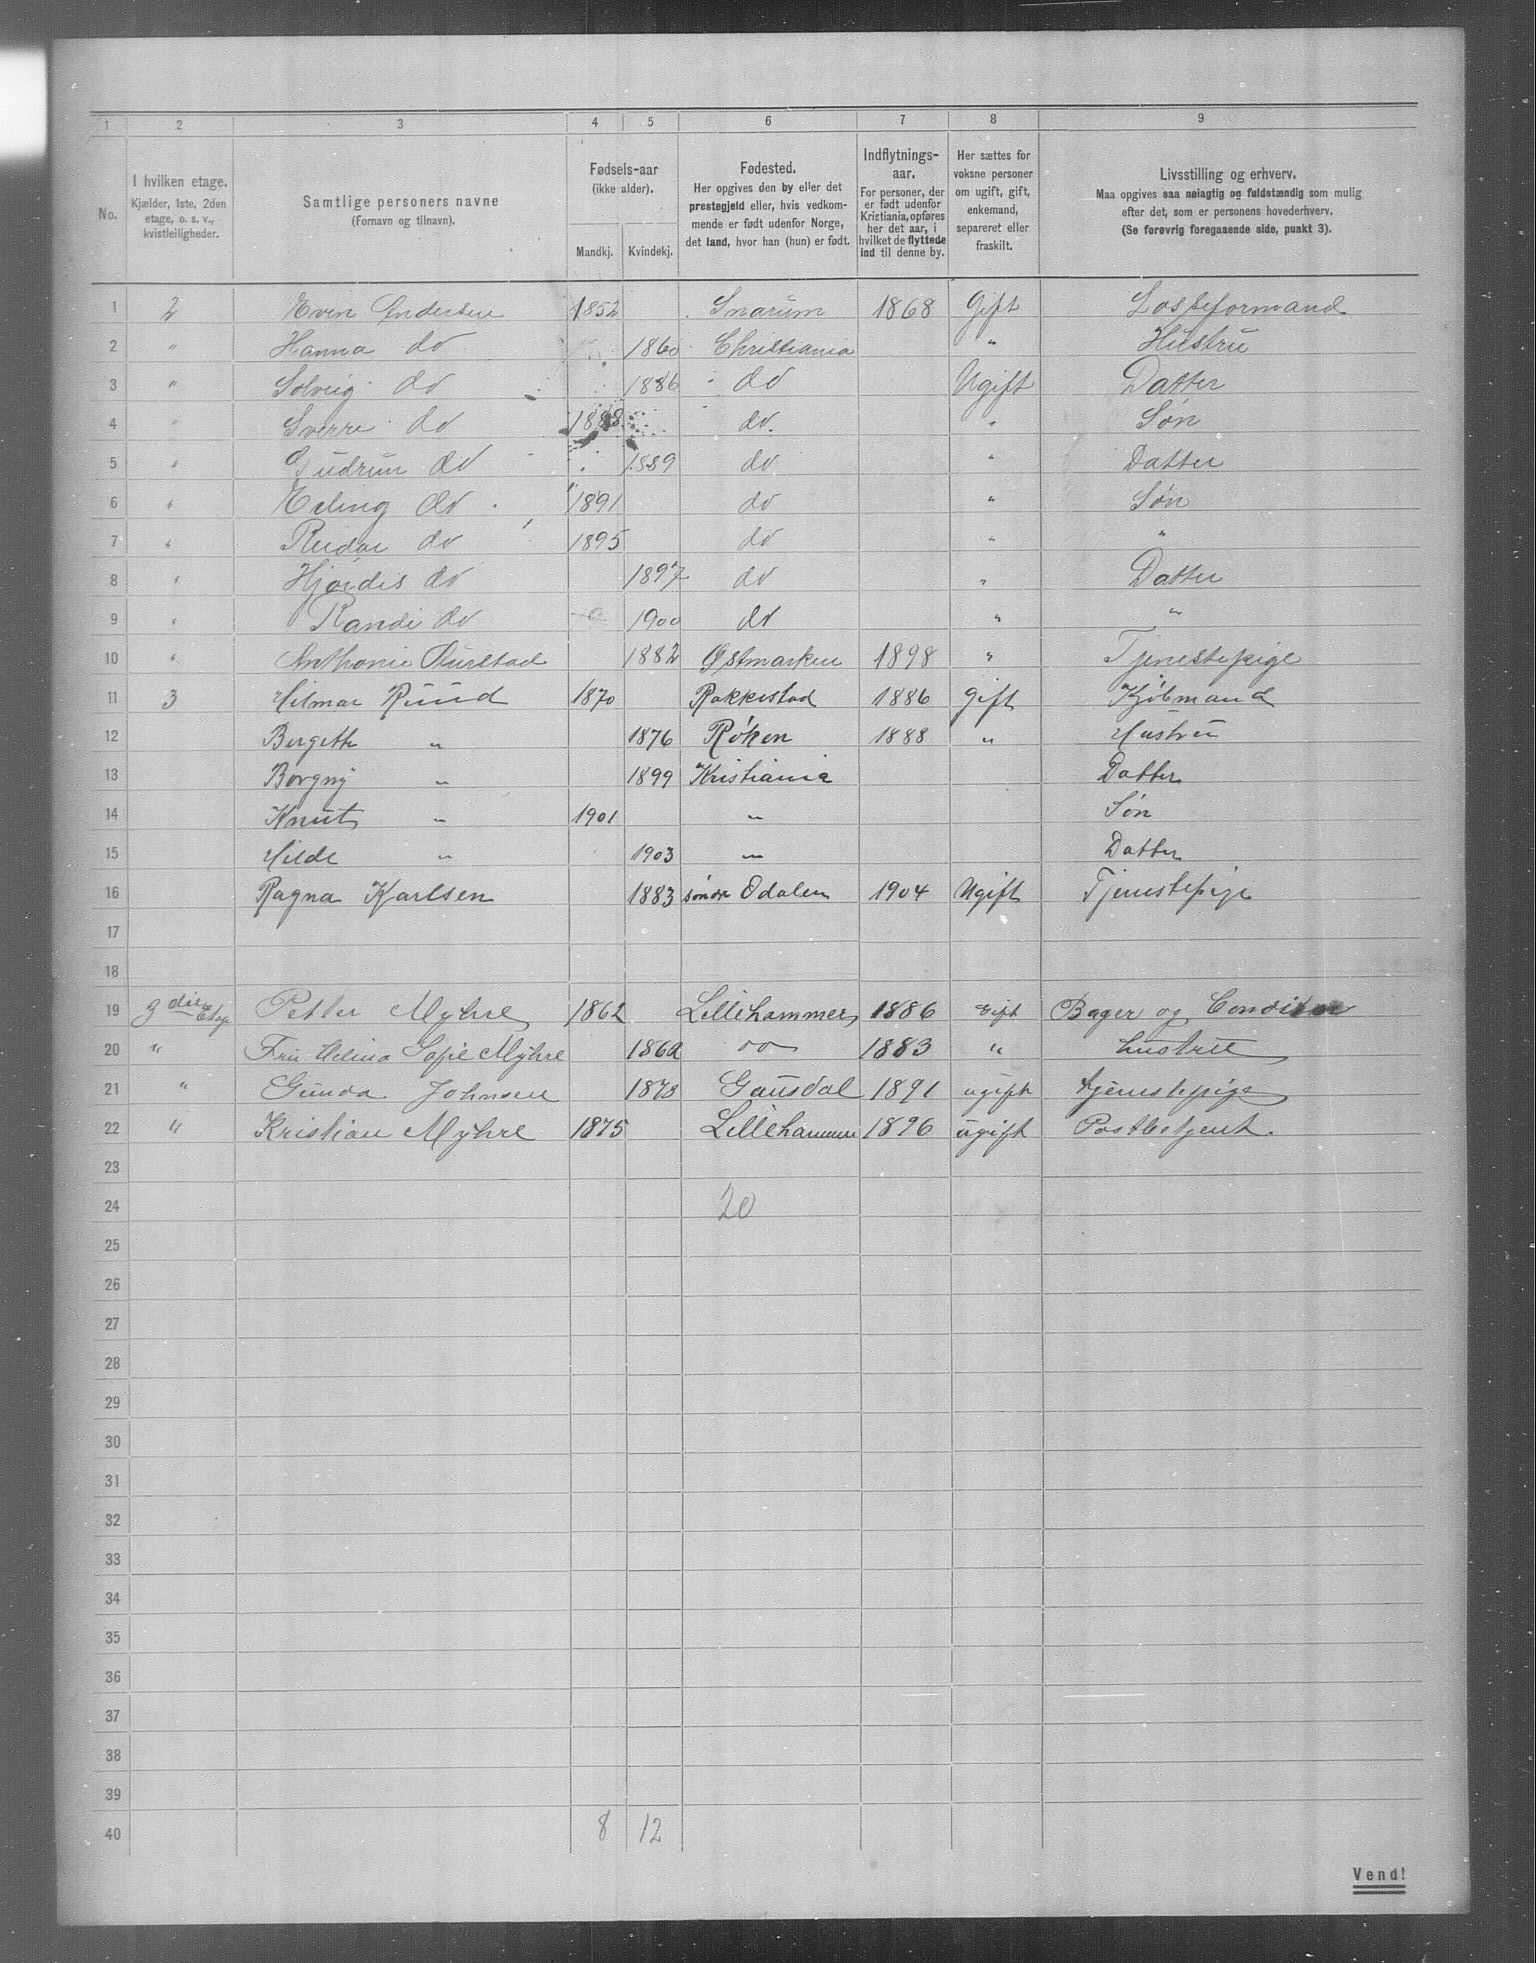 1 2 3 4 5 6 7 8 9
No.
I hvilken etage.
Kjælder, 1ste, 2den
etage, o. s. v.,
kvistleiligheder.
Samtlige personers navne
(Fornavn og tilnavn).
Fødsels-aar
(ikke alder).
Mandkj. Kvindekj.
Fødested.
Her opgives den by eller det
prestegjeld eller, hvis vedkom-
mende er født udenfor Norge,
det land, hvor han (hun) er født.
Indflytnings-
aar.
For personer, der
er født udenfor
Kristiania, opføres
her det aar, i
hvilket de flyttede
ind til denne by.
Her sættes for
voksne personer
om ugift, gift,
enkemand,
separeret eller
fraskilt.
Livsstilling og erhverv.
Maa opgives saa nøiagtig og fuldstændig som mulig
efter det, som er personens hovederhverv.
(Se forøvrig foregaaende side, punkt 3).
1 2 Even Andersen 1852 Snarum 1868 Gift Losseformand
2 " Hanna do 1860 Christiania " Hustru
3 " Solveig do 1886 do Ugift Datter
4 " Sverre do 1888 do. " Søn
5 " Gudrun do 1889 do " Datter
6 " Erling do 1891 do " Søn
7 " Reidar do 1895 do " "
8 " Hjørdis do 1897 do " Datter
9 " Randi do 1900 do " "
10 " Anthonie 1882 Østmarken 1898 " Tjenestepige
11 3 Hilmar Ruud 1870 Rakkestad 1886 gift Kjøbmand
12 Bergette " 1876 Røken 1888 " Hustru
13 Borgny " 1899 Kristiania Datter
14 Knut " 1901 " Søn
15 Hilde " 1903 " Datter
16 Ragna Karlsen 1883 søndr Odalen 1904 Ugift Tjenestepige
17
18
19 3die Etage Petter Myhre 1862 Lillehammer 1886 Gift Bager og Conditor
20 " Fru Helina Sofie Myhre 1862 do 1883 " hustru
21 " Gunda Johnsen 1873 Gausdal 1891 ugift tjenestepige
22 " Kristian Myhre 1875 Lillehammer 1896 ugift Postbetjent.
23
24 20
25
26
27
28
29
30
31
32
33
34
35
36
37
38
39
40 8 12
Vend!